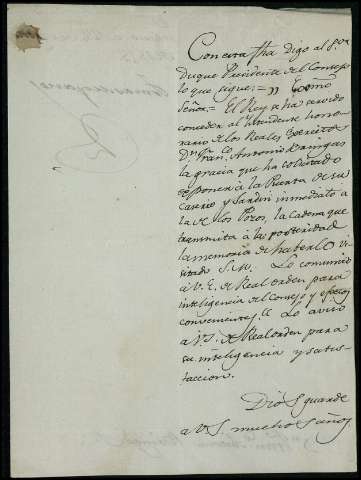 Con esta fha digo al S.or
Duque Presidente del Consejo
lo que sigue: = " Exmo
Señor = El Rey se ha servido
conceder al Yntendente hono-
rario de los Reales Exercitos
D.n Fran.co Antonio
la gracia que ha solicitado
de poner à la Puerta de su
Caserio y Jardin inmediato a
la de los Pozos, la cadena que
transmita à la posteridad
la memoria de haberlo vi-
sitado S.M. Lo comunico
a V.E. de Real orden para
inteligencia del Consejo y efectos
convenientes." Lo aviso
a V.S. de Real orden para
su inteligencia y satis-
faccion.
Dios guarde
a V.S. muchos años